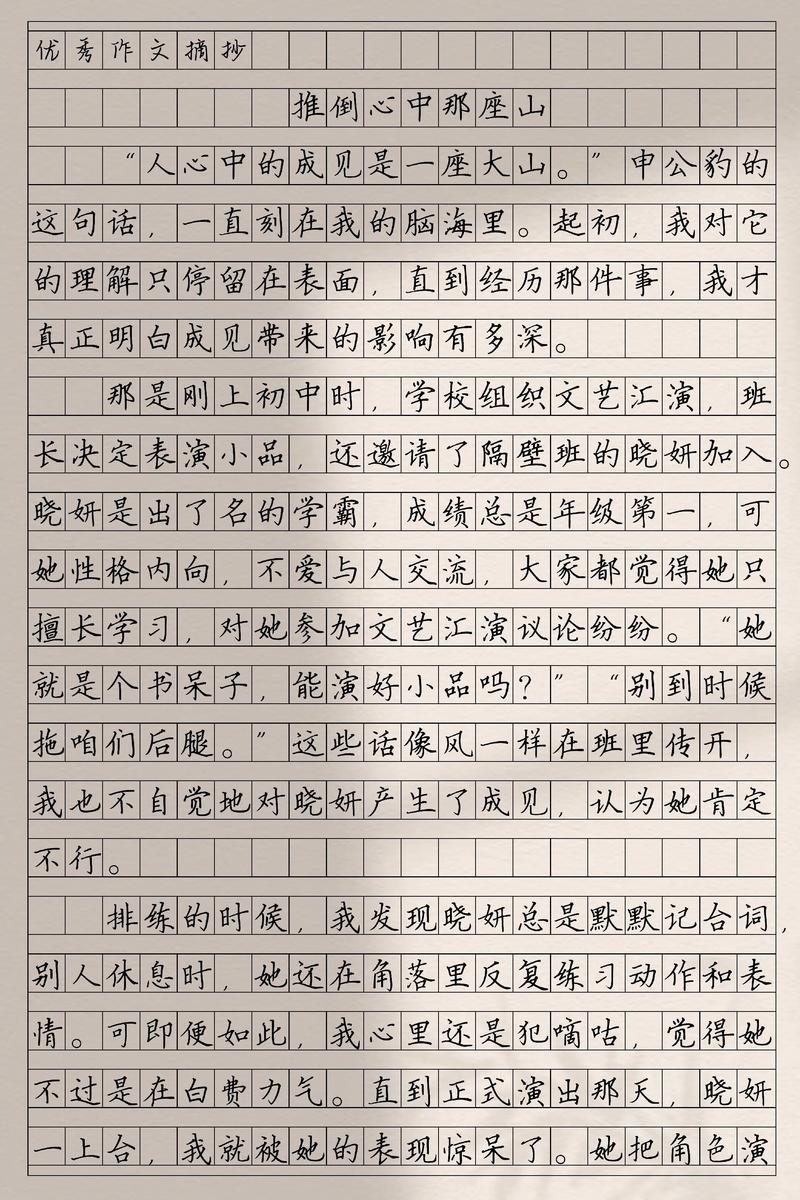 优秀作文摘抄
推倒心中那座山
“人心中的成见是一座大山。”申公豹的
这句话，一直刻在我的脑海里。起初，我对它
的理解只停留在表面，直到经历那件事，我才
真正明白成见带来的影响有多深。
那是刚上初中时，学校组织文艺汇演，班
长决定表演小品，还邀请了隔壁班的晓妍加入。
晓妍是出了名的学霸，成绩总是年级第一，可
她性格内向，不爱与人交流，大家都觉得她只
擅长学习，对她参加文艺汇演议论纷纷。“她
就是个书呆子，能演好小品吗？”“别到时候
拖咱们后腿。”这些话像风一样在班里传开，
我也不自觉地对晓妍产生了成见，认为她肯定
不行。
排练的时候，我发现晓妍总是默默记台词，
别人休息时，她还在角落里反复练习动作和表
情。可即便如此，我心里还是犯嘀咕，觉得她
不过是在白费力气。直到正式演出那天，晓妍
一上台，我就被她的表现惊呆了。她把角色演